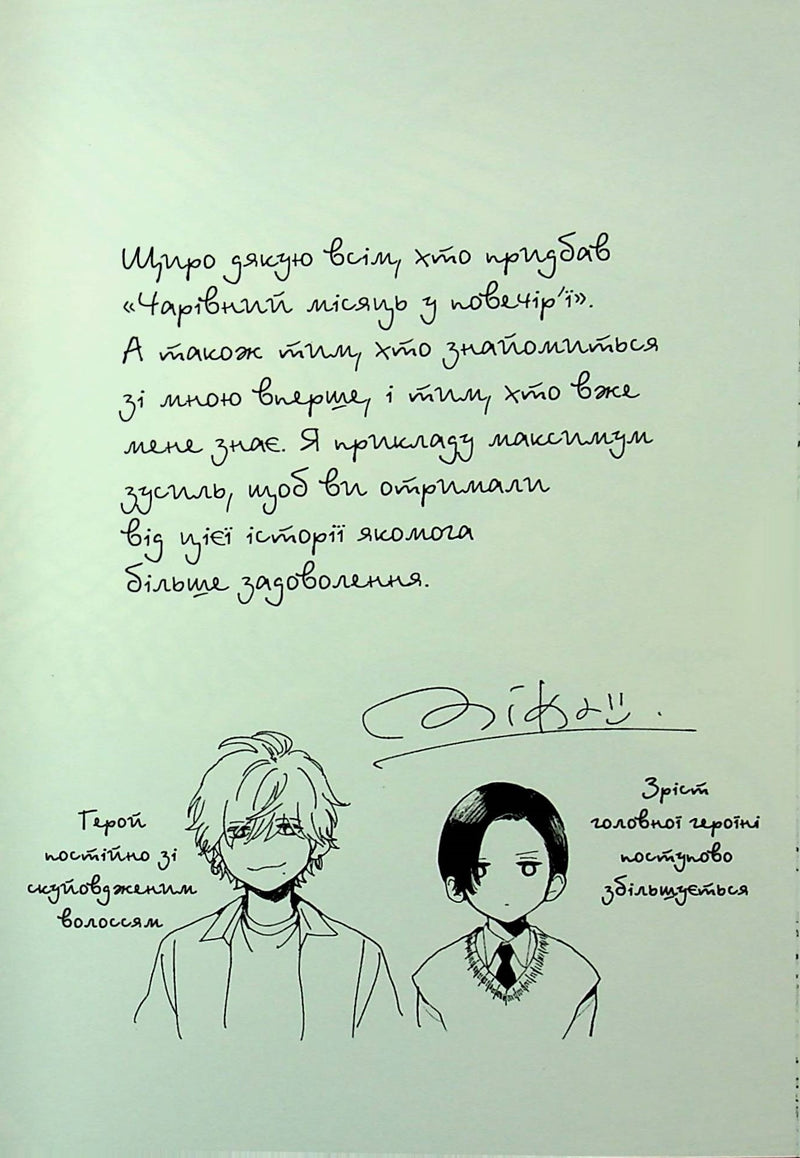 Щиро дякую всім, хто придбав
«Чарівний місяць у повечір'ї».
А також тим, хто знайомиться
зі мною вперше, і тим, хто вже
мене знає. Я прикладу максимум
зусиль, щоб ви отримали
від цієї історії якомога
більше задоволення.
Герой
постійно зі
скуйовдженим
волоссям
Зріст
головної героїні
поступово
збільшується